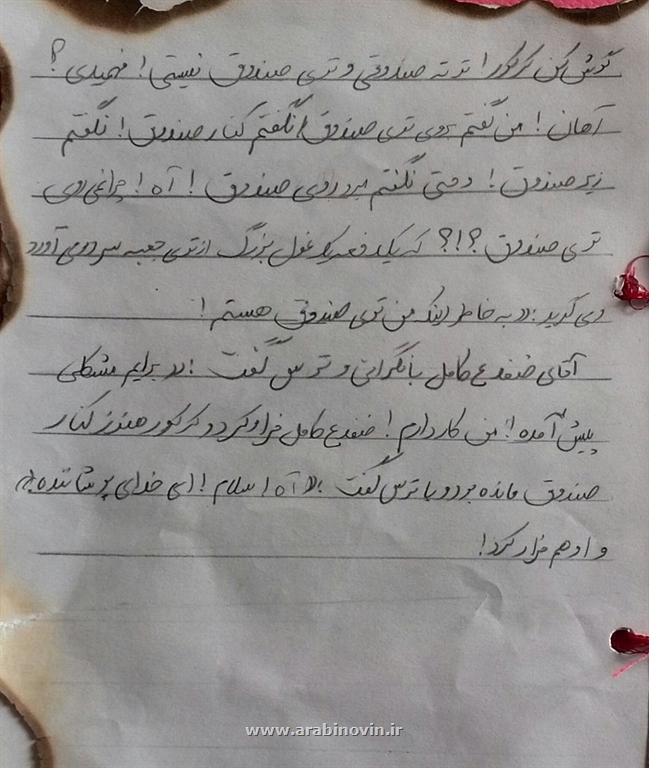 گوش کن کرکور! تو ته صندوقی و توی صندوق نیستی! فهمیدی؟
آهان! من گفتم بروی توی صندوق! نگفتم کنار صندوق! نگفتم
زیر صندوق! وحتی نگفتم برو روی صندوق! آه! چرا نمی روی
توی صندوق؟!؟ که یکدفعه یک غول بزرگ از توی جعبه سر در می آورد
و می گوید: «به خاطر اینکه من توی صندوق هستم!
آقای ضفدع کامل با نگرانی و ترس گفت: «برایم مشکلی
پیش آمده! من کار دارم! ضفدع کامل فرار کرد و کرکور هنوز کنار
صندوق مانده بود و با ترس گفت: «آه! سلام! ای خدای پوشاننده»
و او هم فرار کرد!
www.arabinovin.ir